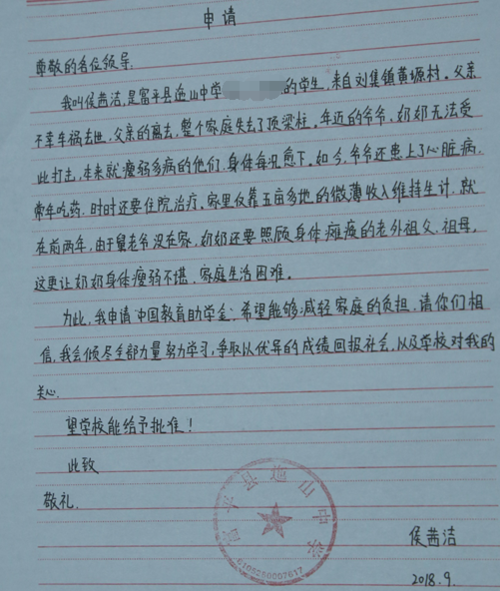 申请
尊敬的各位领导:
我叫侯茜洁,是富平县迤山中学 的学生,来自刘集镇黄塬村。父亲
不幸车祸去世,父亲的离去,整个家庭失去了顶梁柱。年迈的爷爷、奶奶无法受
此打击,本来就瘦弱多病的他们,身体每况愈下。如今,爷爷还患上了心脏病,
常年吃药,时时还要住院治疗。家里仅靠五亩多地的微薄收入维持生计,就
在前两年,由于舅老爷没在家,奶奶还要照顾身体瘫痪的老外祖父、祖母,
这更让奶奶身体瘦弱不堪,家庭生活困难。
为此,我申请"中国教育助学金",希望能够减轻家庭的负担,请你们相
信,我会倾尽全部力量努力学习,争取以优异的成绩回报社会,以及学校对我的
关心.
望学校能给予批准!
此致
敬礼.
富平县迤山中学
6105280007617
侯茜洁
2018.9.